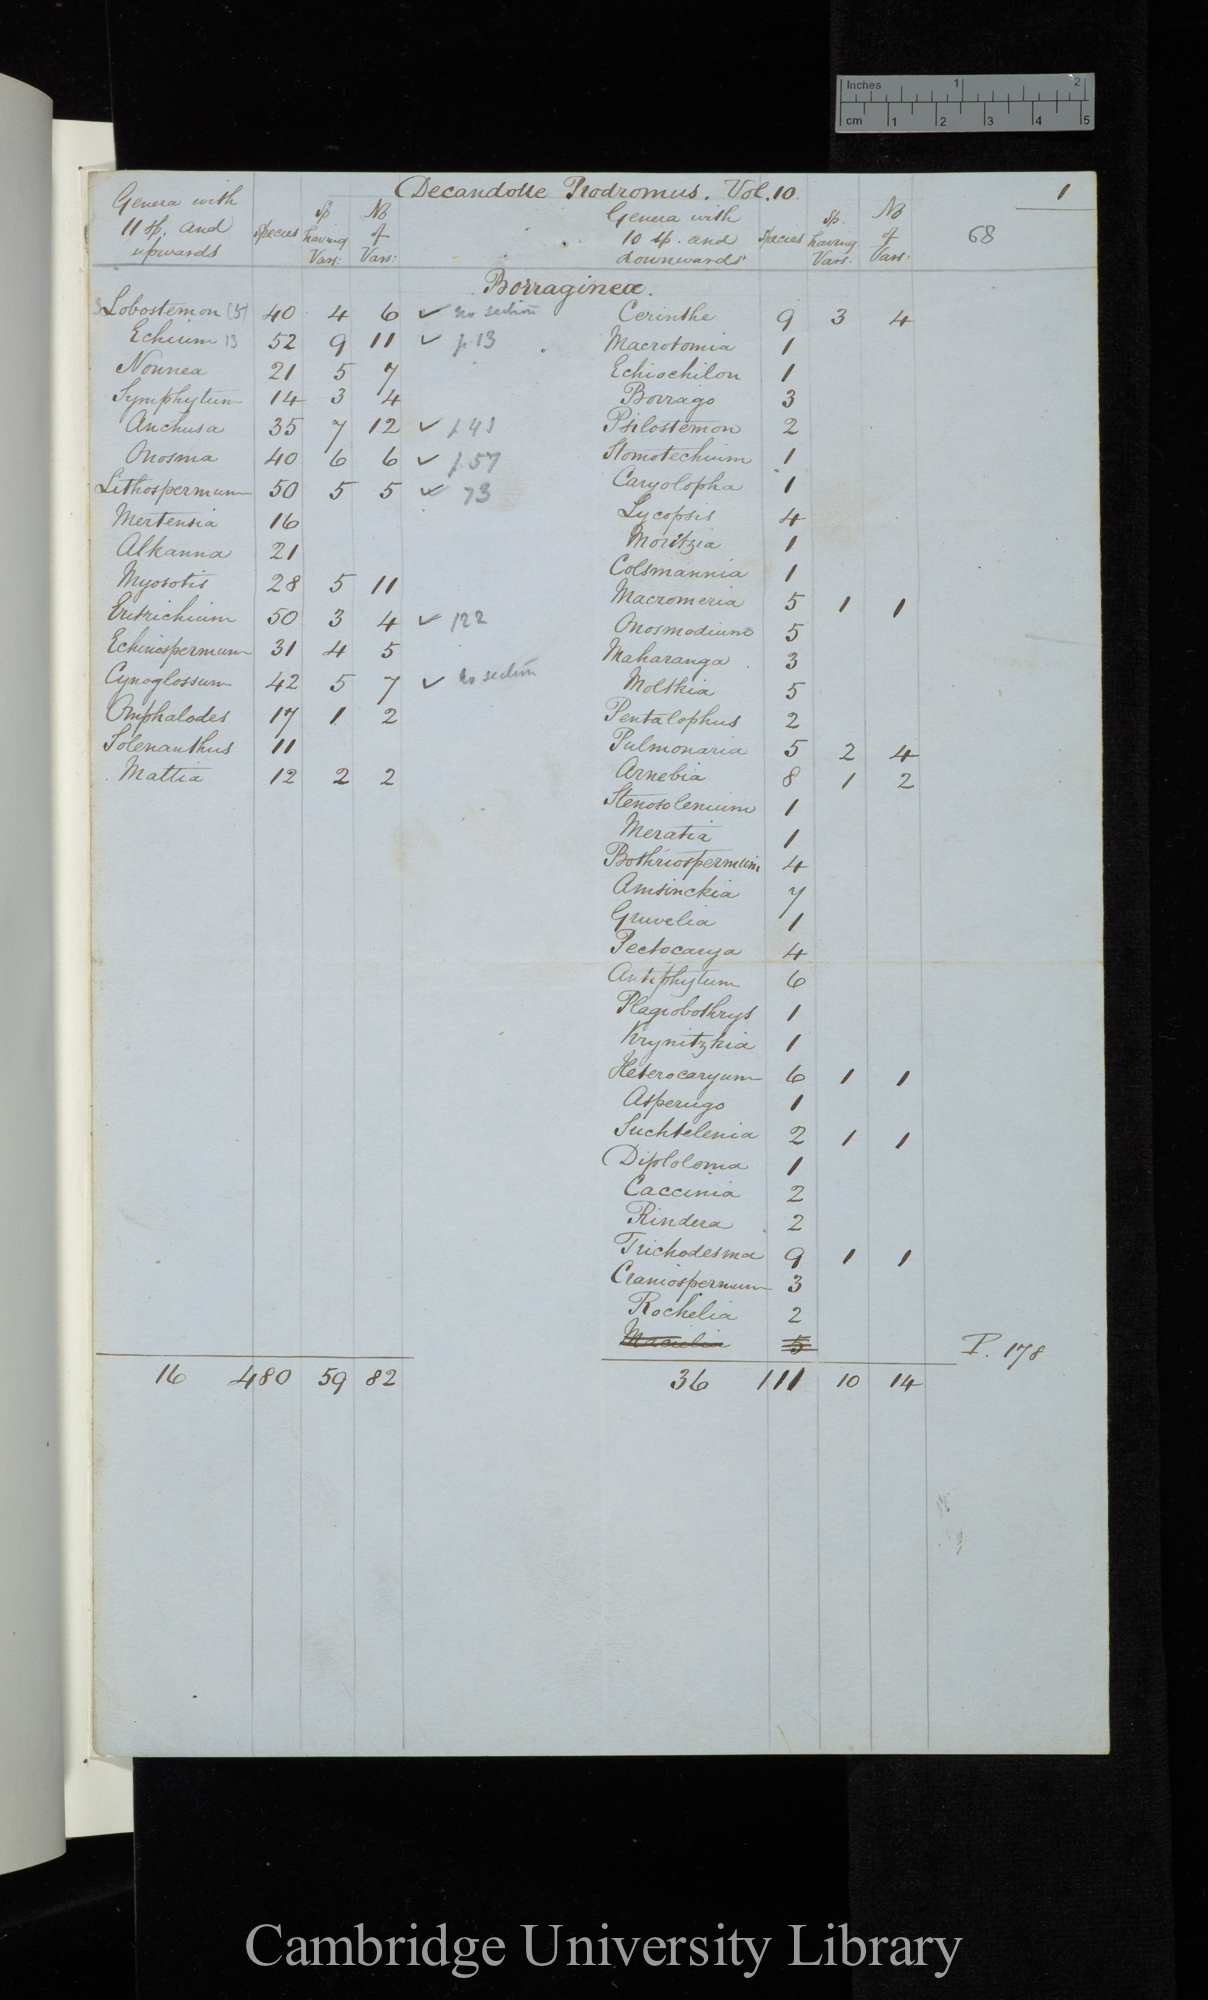 Inches 1 2
cm 1 2 3 4 5
Decandolle Prodromus. Vol. 10.
1
68
Genera with
11 sp. and
upwards
Species
Sp.
having
Vars:
No
of
Vars:
Genera with
10 sp. and
downwards
Species
Sp.
having
Vars:
No
of
Vars:
Borragineæ.
Lobostemon (5) 40 4 6 ✓ no section
Echium 13 52 9 11 ✓ p 13
Nonnea 21 5 7
Symphytum 14 3 4
Anchusa 35 7 12 ✓ p 41
Onosma 40 6 6 ✓ p 57
Lithospermum 50 5 5 ✓ 73
Mertensia 16
Alkanna 21
Myosotis 28 5 11
Eritrichium 50 3 4 ✓ 122
Echinospermum 31 4 5
Cynoglossum 42 5 7 ✓ no section
Omphalodes 17 1 2
Solenanthus 11
Mattia 12 2 2
16 480 59 82
Cerinthe 9 3 4
Macrotomia 1
Echiochilon 1
Borrago 3
Psilostemon 2
Stomotechium 1
Caryolopha 1
Lycopsis 4
Moritzia 1
Colsmannia 1
Macromeria 5 1 1
Onosmodium 5
Maharanga 3
Moltkia 5
Pentalophus 2
Pulmonaria 5 2 4
Arnebia 8 1 2
Stenosolenium 1
Meratia 1
Bothriospermum 4
Amsinckia 7
Gruvelia 1
Pectocarya 4
Antiphytum 6
Plagiobothrys 1
Krynitzkia 1
Heterocaryum 6 1 1
Asperugo 1
Suchtelenia 2 1 1
Diploloma 1
Caccinia 2
Rindera 2
Trichodesma 9 1 1
Craniospermum 3
Rochelia 2
5
P. 178
36 111 10 14
Cambridge University Library